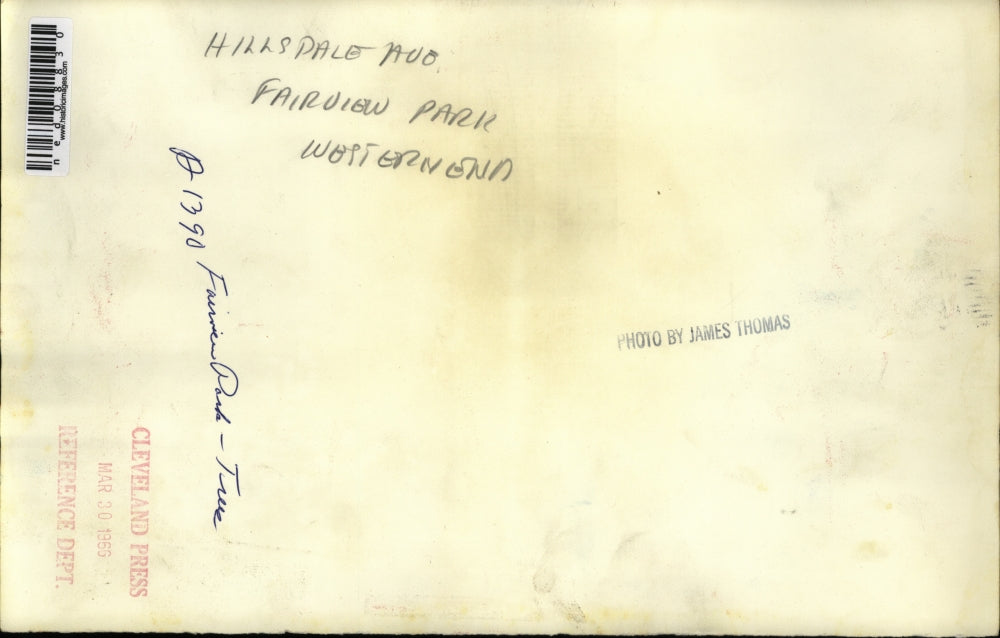 HILLSDALE AVE.
FAIRVIEW PARK
WESTERN END
A 1390 Fairview Park - Tree
PHOTO BY JAMES THOMAS
CLEVELAND PRESS
MAR 30 1966
REFERENCE DEPT.
www.historicimages.com
ned08830